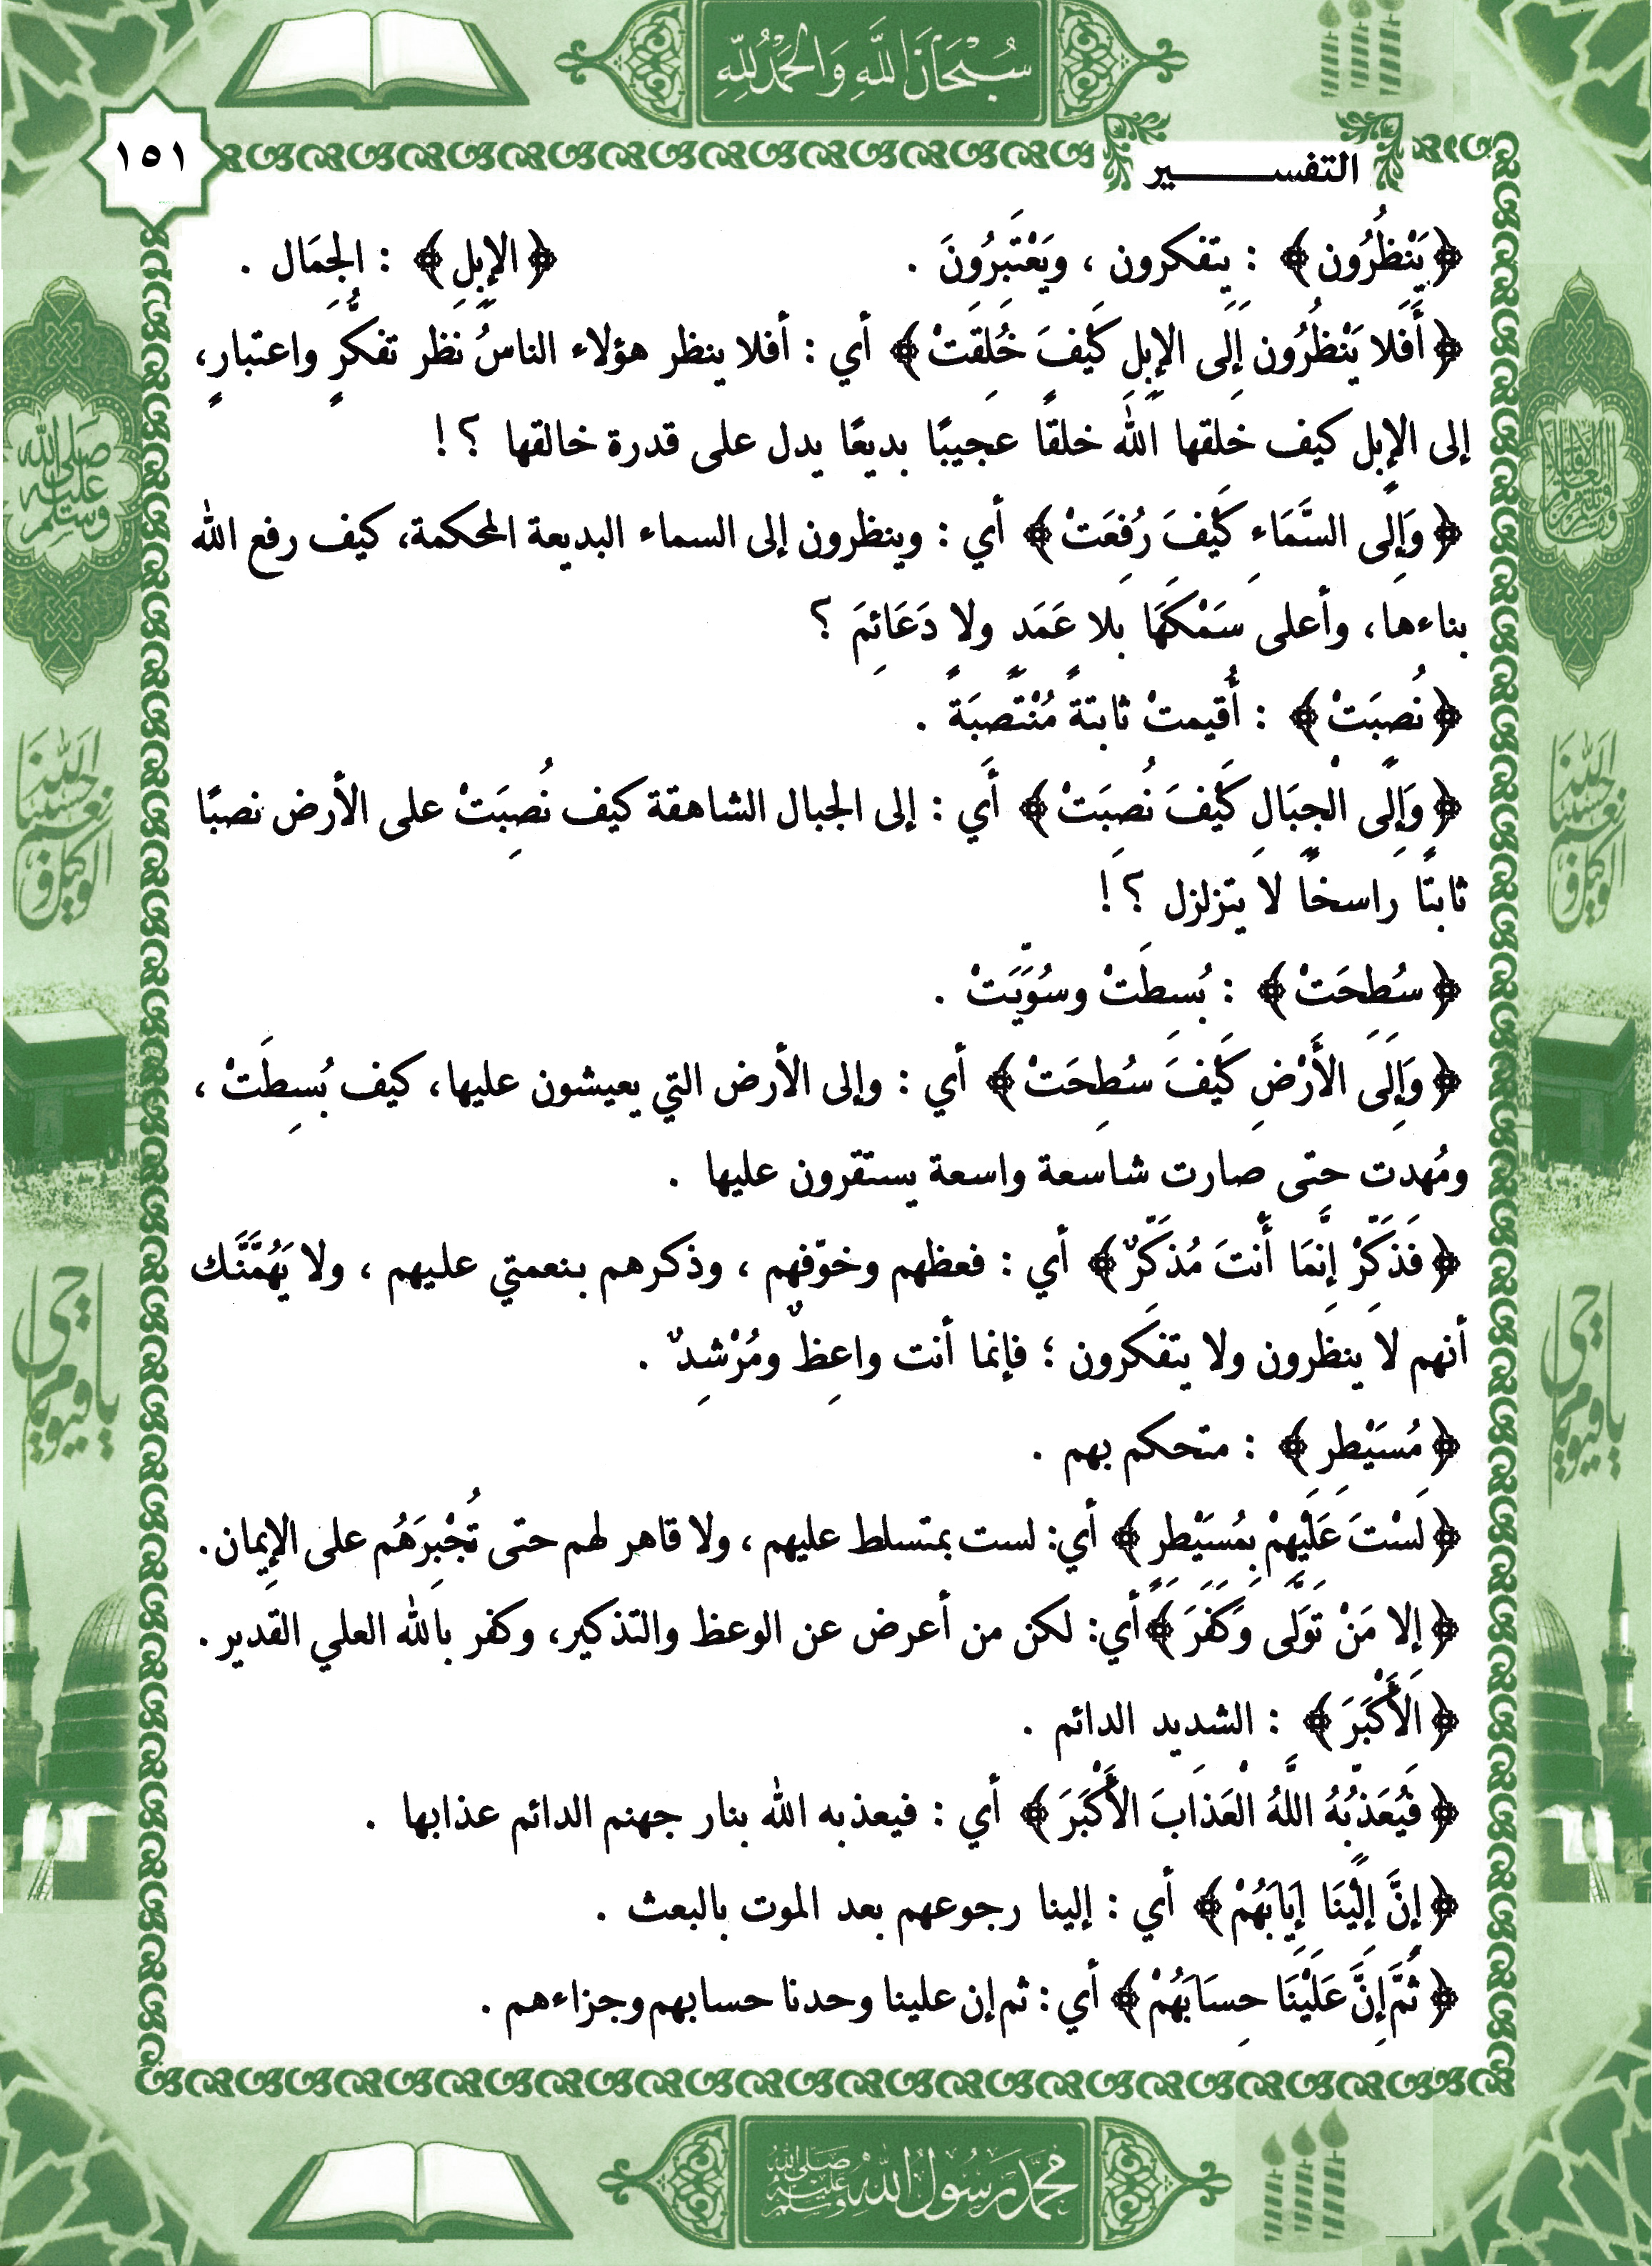 سُبْحَانَ اللَّهِ وَالحَمْدُ لِلَّهِ
١٥١
التفسير
﴿يَنْظُرُون﴾ : يتفكرون ، ويَعْتَبِرُونَ . ﴿الإِبِلِ﴾ : الجِمَال .
﴿أَفَلا يَنْظُرُون إِلَى الإِبِلِ كَيْفَ خُلِقَتْ﴾ أي : أفلا ينظر هؤلاء الناسُ نظر تفكُّرٍ واعتبارٍ،
إلى الإِبل كيف خلقها الله خلقًا عجيبًا بديعًا يدل على قدرة خالقها ؟ !
﴿وَإِلَى السَّمَاءِ كَيْفَ رُفِعَتْ﴾ أي : وينظرون إلى السماء البديعة المحكمة، كيف رفع الله
بناءها، وأعلى سَمْكَهَا بلا عَمَدٍ ولا دَعَائِمَ ؟
﴿نُصِبَتْ﴾ : أُقيمتْ ثابتةً مُنْتَصِبَةً .
﴿وَإِلَى الْجِبَالِ كَيْفَ نُصِبَتْ﴾ أَي : إلى الجبال الشاهقة كيف نُصِبَتْ على الأرض نصبًا
ثابتًا راسخًا لا يتزلزل ؟ !
﴿سُطِحَتْ﴾ : بُسِطَتْ وسُوِّيَتْ .
﴿وَإِلَى الأَرْضِ كَيْفَ سُطِحَتْ﴾ أي : وإلى الأرض التي يعيشون عليها، كيف بُسِطَتْ ،
ومُهدت حتى صارت شاسعة واسعة يستقرون عليها .
﴿فَذَكِّرْ إِنَّمَا أَنتَ مُذَكِّرٌ﴾ أي : فعظهم وخوّفهم ، وذكرهم بنعمتي عليهم ، ولا يَهُمَّنَّك
أنهم لا ينظرون ولا يتفكرون ؛ فإنما أنت واعِظٌ ومُرْشِدٌ .
﴿مُسَيْطِرِ﴾ : متحكم بهم .
﴿لَسْتَ عَلَيْهِمْ بِمُسَيْطِرٍ﴾ أي: لست بمتسلط عليهم ، ولا قاهر لهم حتى تُجْبِرَهُم على الإِيمان.
﴿إِلا مَنْ تَوَلَّى وَكَفَرَ﴾أي: لكن من أعرض عن الوعظ والتذكير، وكفر بالله العلي القدير.
﴿الأَكْبَرَ﴾ : الشديد الدائم .
﴿فَيُعَذِّبُهُ اللَّهُ الْعَذَابَ الأَكْبَرَ﴾ أي : فيعذبه الله بنار جهنم الدائم عذابها .
﴿إِنَّ إِلَيْنَا إِيَابَهُمْ﴾ أي : إلينا رجوعهم بعد الموت بالبعث .
﴿ثُمَّ إِنَّ عَلَيْنَا حِسَابَهُمْ﴾ أي : ثم إن علينا وحدنا حسابهم وجزاءهم .
صلى الله عليه وسلم
حسبنا الله ونعم الوكيل
حسبنا الله ونعم الوكيل
يا حي يا قيوم
يا حي يا قيوم
محمد رسول الله صلى الله عليه وسلم